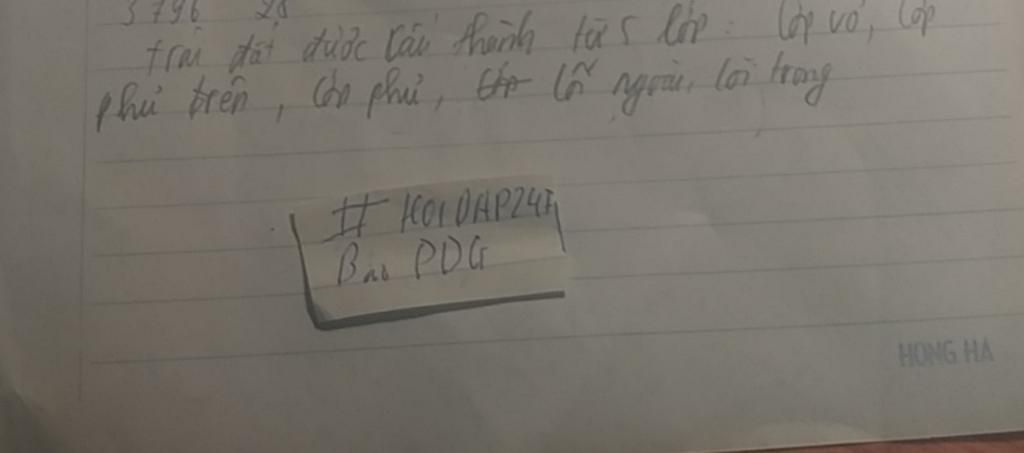 3796 28
trái đất được cấu thành từ 5 lớp: lớp vỏ, lớp
phủ trên, lớp phủ, lõi ngoài, lõi trong
# HOIDAP247
Bao PDG
HONG HA